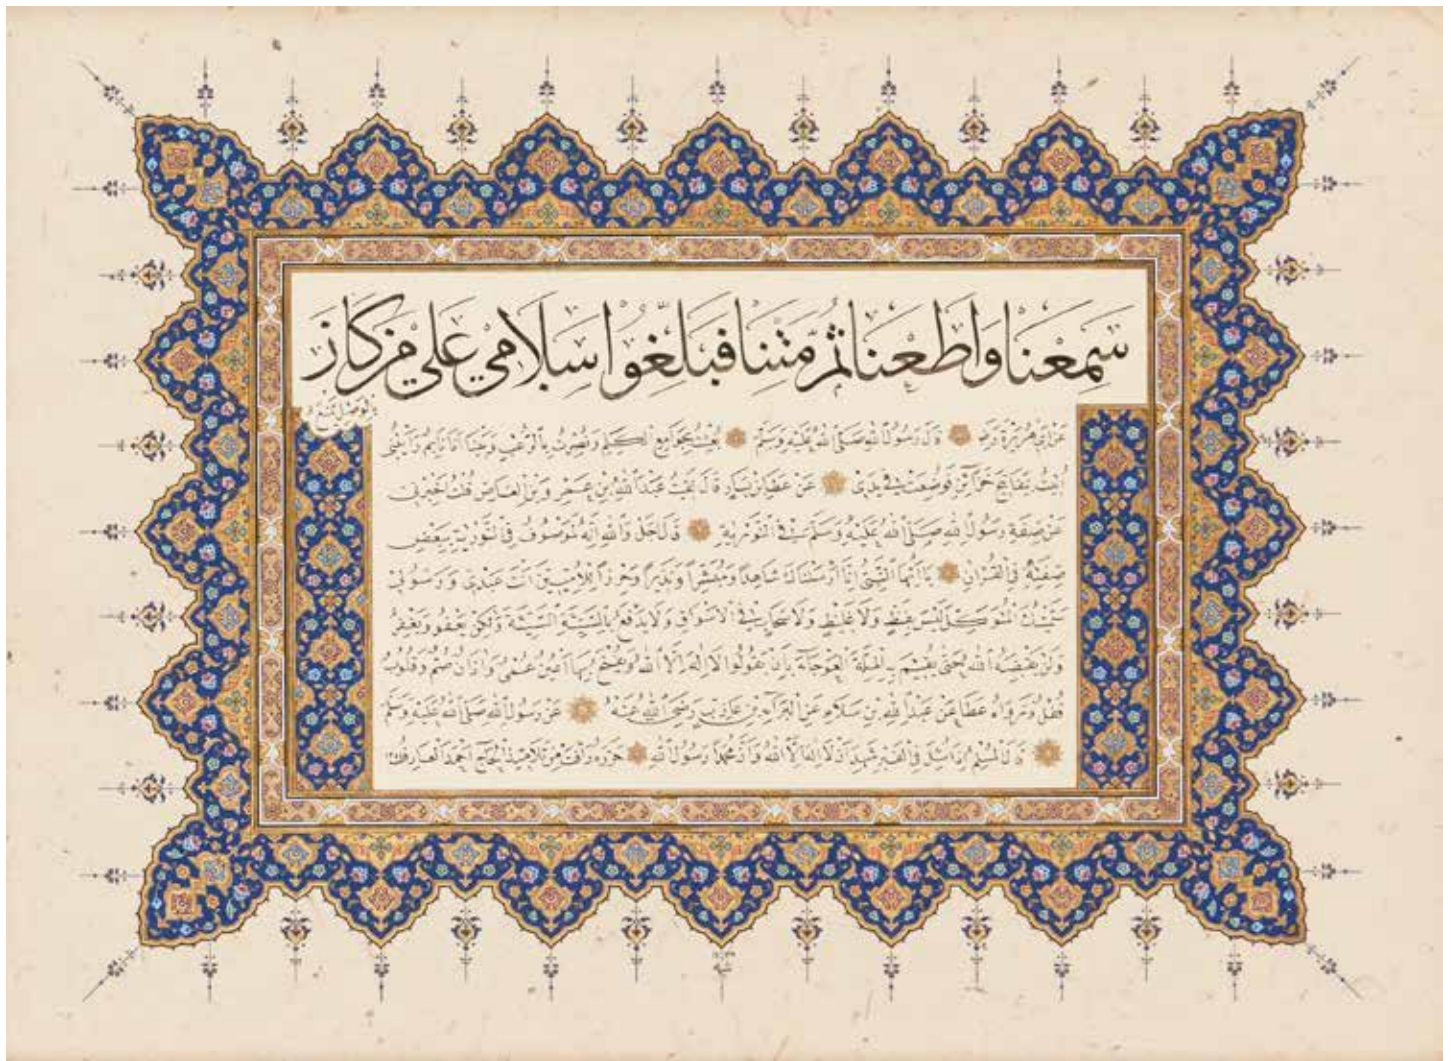 سَمِعْنَا وَاَطَعْنَا ثُمَّ مُتْنَا فَبَلِّغُوا سَلَامِي عَلٰى مَنْ كَانَ
للوصل
عن ابي هريرة رضي قال رسول الله صلى الله عليه وسلم بعثت بجوامع الكلم ونصرت بالرعب وبينا انا نائم رأيتني
أتيت بمفاتيح خزائن فوضعت في يدي عن عطا بن يسار قال لقيت عبد الله بن عمرو بن العاص قلت اخبرني
عن صفة رسول الله صلى الله عليه وسلم في التورية قال اجل والله انه لموصوف في التورية ببعض
صفته في القران يا ايها النبي انا ارسلناك شاهدا ومبشرا ونذيرا وحرزا للاميين انت عبدي ورسولي
سميتك المتوكل ليس بفظ ولا غليظ ولا سخاب في الاسواق ولا يدفع بالسيئة السيئة ولكن يعفو ويغفر
ولن يقبضه الله حتى يقيم به الملة العوجاء بان يقولوا لا اله الا الله ويفتح بها اعين عمي واذان صم وقلوب
عطا عن عبد الله بن سلام عن البراء بن عازب رضي الله عنه عن رسول الله صلى الله عليه وسلم
قال المسلم اذا سئل في القبر شهد ان لا اله الا الله وان محمدا رسول الله حرره من تلاميذ الحاج احمد العارف